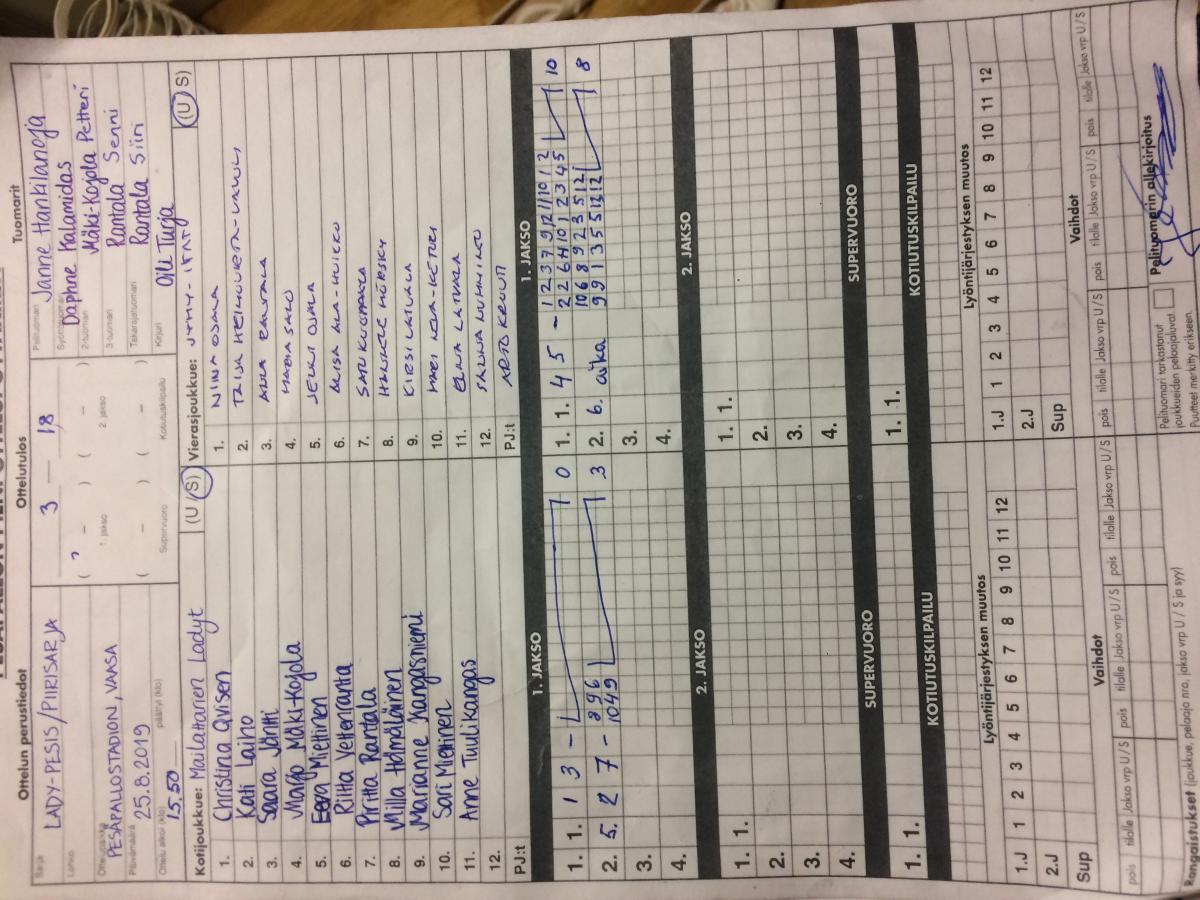 Ottelun perustiedot
Ottelutulos
Tuomarit
Sarja
LADY-PESIS / PIIRISARJA
Lohko
Ottelupaikka
PESÄPALLOSTADION, VAASA
Päivämäärä
25.8.2019
Ottelu alkoi (klo)
15.50
päättyi (klo)
3 — 18
( – ) ( – )
1. jakso 2. jakso
( – ) ( – )
Supervuoro Kotiutuskilpailu
Pelituomari Janne Hankilanoja
Syöttötuomari Daphne Kalamidas
2-tuomari Mäki-Kojola Petteri
3-tuomari Rantala Senni
Takarajatuomari Rantala Siiri
Kirjuri Oili Turja
Kotijoukkue: Mailattarien Ladyt (U/S)
1. Christina Qvisen
2. Kati Laiho
3. Saara Jäntti
4. Marjo Mäki-Kojola
5. Eera Miettinen
6. Riitta Vetteranta
7. Piritta Rantala
8. Milla Hämäläinen
9. Marianne Kangasniemi
10. Sari Miettinen
11. Anne Tuulikangas
12.
PJ:t
Vierasjoukkue: (U/S)
1. NINA OJALA
2. TAIJA
3. ANNA RAUTALA
4. MARIA SALO
5. JENNI OJALA
6. ANSA ALA-HUIKKO
7. SARI KUOPPALA
8.
9. KIRSI LATVALA
10.
11. ELINA LATVALA
12. SALINA LUHMINTO
PJ:t
1. JAKSO
1. 1. 1 3 – 0
2. 5. 2 7 – 8 9 6 3
10 4 9
3.
4.
1. JAKSO
1. 1. 4 5 – 1 2 3 7 9 12 1 10 1 2 10
2 2 6 4 10 1 2 3 4 5
2. 6. aika 10 6 8 9 2 3 5 12 8
9 9 1 3 5 5 12 12
3.
4.
2. JAKSO
1. 1.
2.
3.
4.
2. JAKSO
1. 1.
2.
3.
4.
SUPERVUORO
1. 1.
SUPERVUORO
1. 1.
KOTIUTUSKILPAILU
KOTIUTUSKILPAILU
Lyöntijärjestyksen muutos
1.J 1 2 3 4 5 6 7 8 9 10 11 12
2.J
Sup
Lyöntijärjestyksen muutos
1.J 1 2 3 4 5 6 7 8 9 10 11 12
2.J
Sup
Vaihdot
pois tilalle Jakso vrp U/S pois tilalle Jakso vrp U/S pois tilalle Jakso vrp U/S
Vaihdot
pois tilalle Jakso vrp U/S pois tilalle Jakso vrp U/S pois tilalle Jakso vrp U/S
Rangaistukset (joukkue, pelaaja nro, jakso U/S ja syy)
Pelituomari tarkastanut
joukkueiden pelaajaluvat.
Puutteet merkitty erikseen.
Pelituomarin allekirjoitus